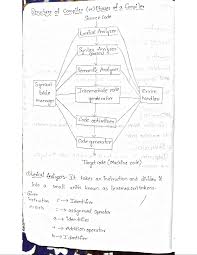 Structure of Compiler (or) Phases of a Compiler
Source Code
Lexical Analyzer
Syntax Analyzer
Semantic Analyzer
Symbol table manager
Intermediate code generator
Error handler
Code optimization
Code generator
Target code (Machine code)
Lexical Analyzer:- It takes an Instruction and divides it
into a small units known as lexemes/tokens.
Instruction
→ Identifier
→ assignment operator
a → Identifier
+ → Addition operator
b → Identifier